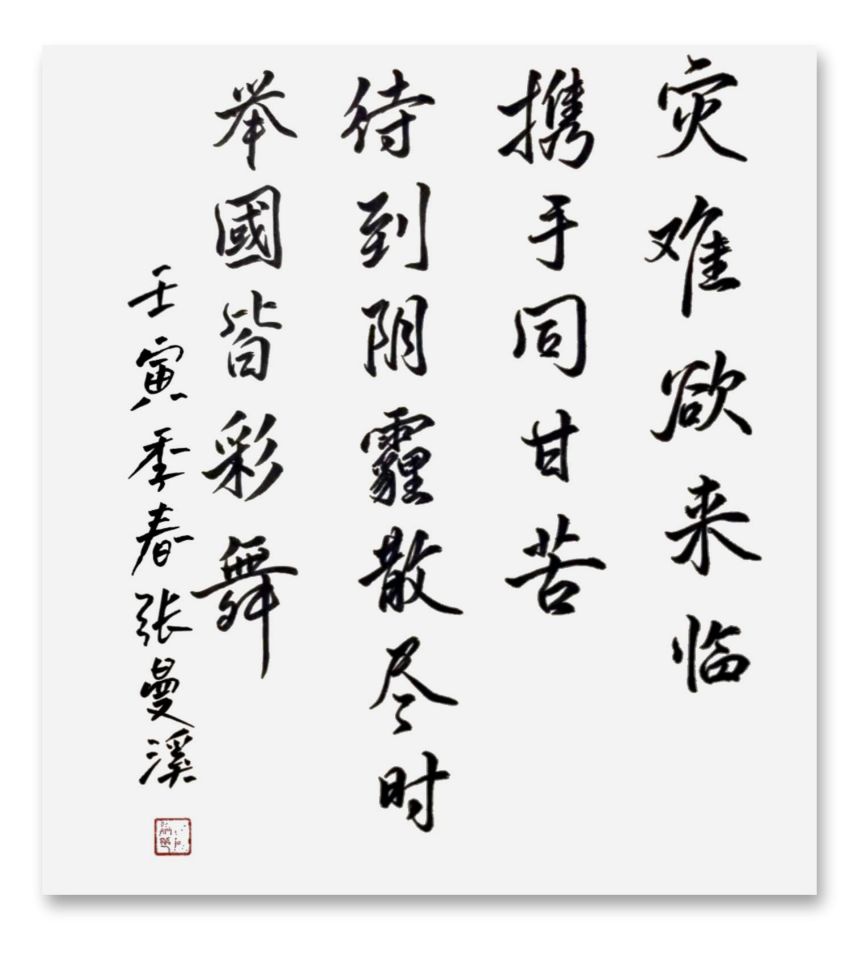 灾难欲来临
携手同甘苦
待到阴霾散尽时
举國皆彩舞
壬寅季春张曼溪